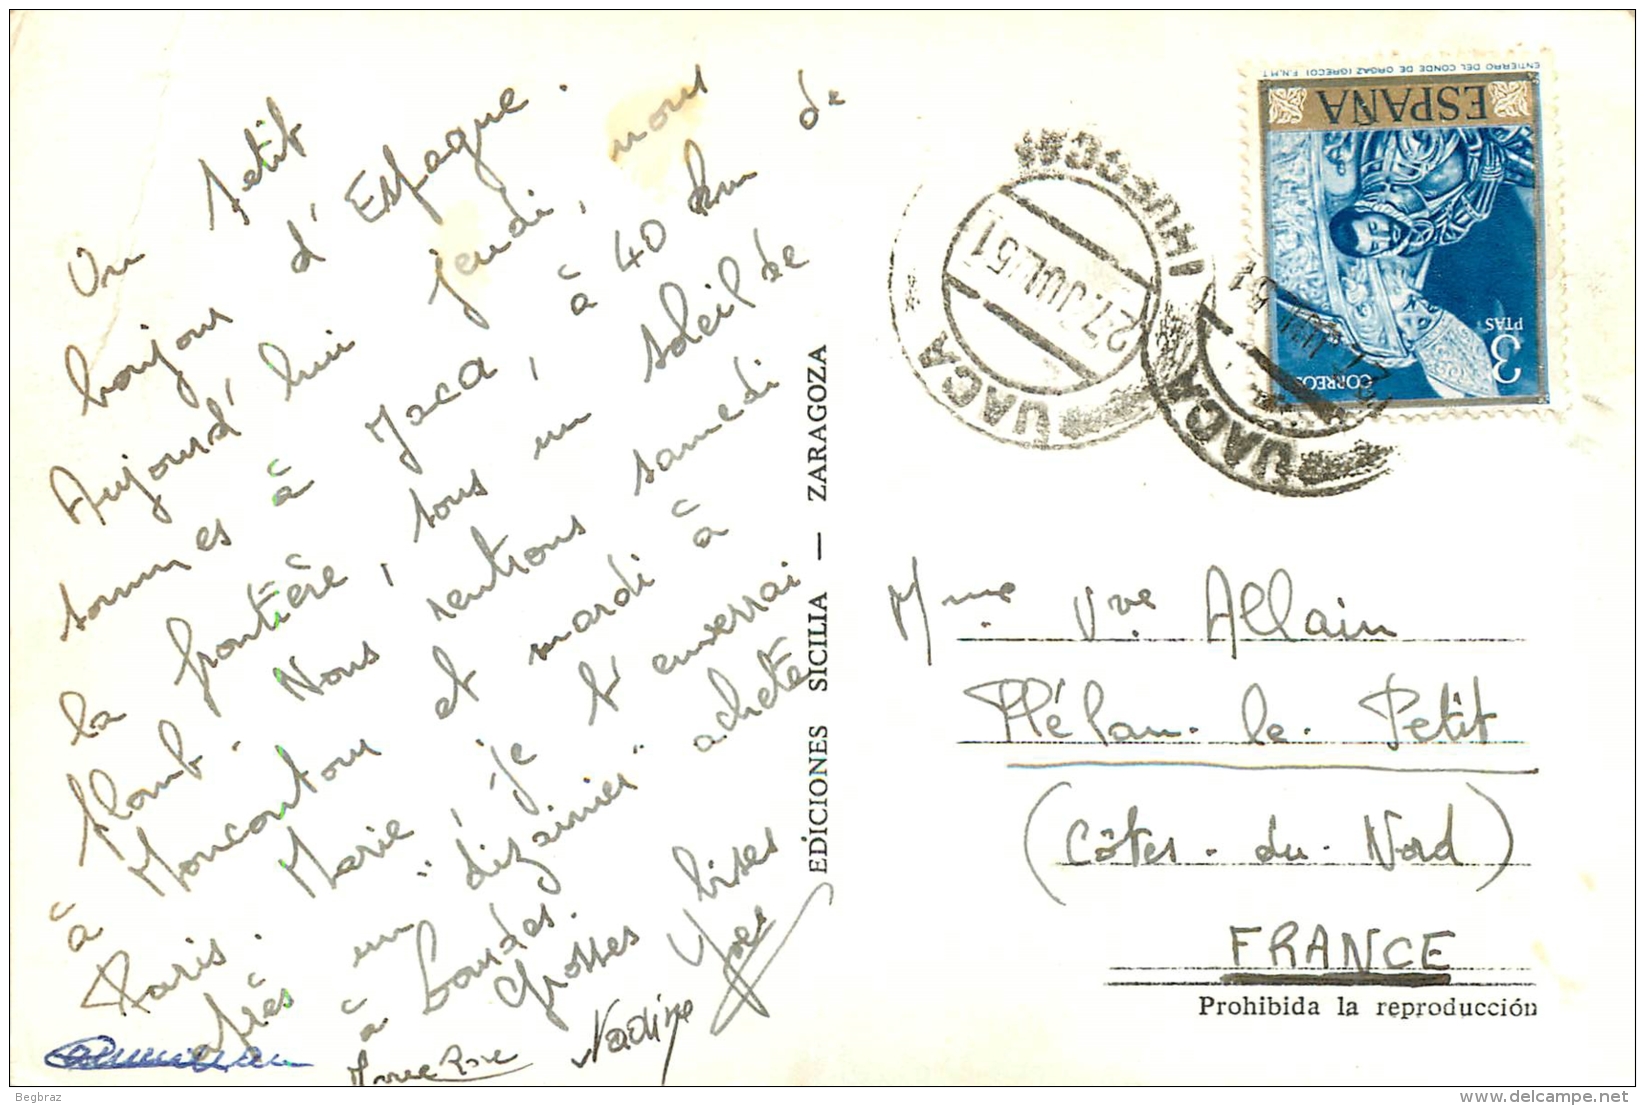 Un petit
bonjour d'Espagne.
Aujourd'hui jeudi, nous
sommes à Jaca, à 40 km de
la frontière, sous un soleil de
plomb. Nous rentrons samedi
à Moncontour et mardi à
Paris. Marie, je t'enverrai
après un "dizainier" acheté
à Lourdes.
Grosses bises
Yves
Nadine
Marie Rose
EDICIONES SICILIA — ZARAGOZA
ENTIERRO DEL CONDE DE ORGAZ (GRECO) F.N.M.T.
ESPAÑA
3
PTAS
CORREOS
(HUESCA)
27 JUL 61
JACA
JACA
Mme Vve Allain
Plélan-le-Petit
(Côtes-du-Nord)
FRANCE
Prohibida la reproducción
Begbraz
delcampe.net